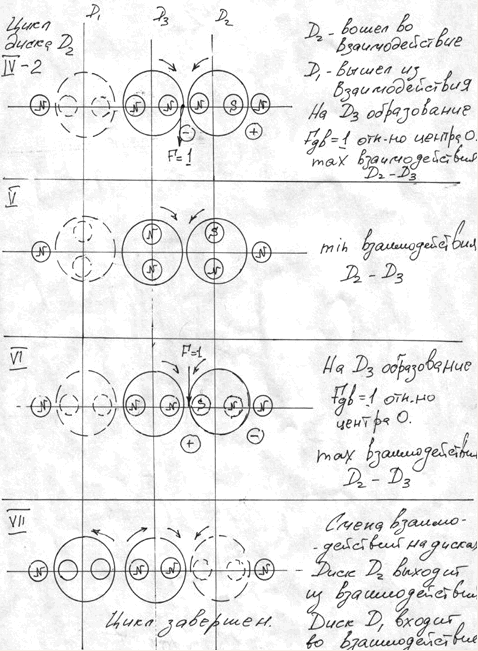 Цикл
диска D₂
D₁
D₃
D₂
IV-2
N N N N S N
⊖ ⊕
F=1
D₂ - вошел во
взаимодействие
D₁ - вышел из
взаимодействия
На D₃ образование
Fдв=1 отн-но центра О.
max взаимодействия
D₂ - D₃
V
N S
N N
N N
min взаимодействия
D₂ - D₃
VI
F=1
N N N S N N
⊕ ⊖
На D₃ образование
Fдв=1 отн.но
центра О.
max взаимодействия
D₂ - D₃
VII
N N N N
Смена взаимо-
-действий на дисках
Диск D₂ выходит
из взаимодействия
Диск D₁ входит
во взаимодействие
Цикл завершен.